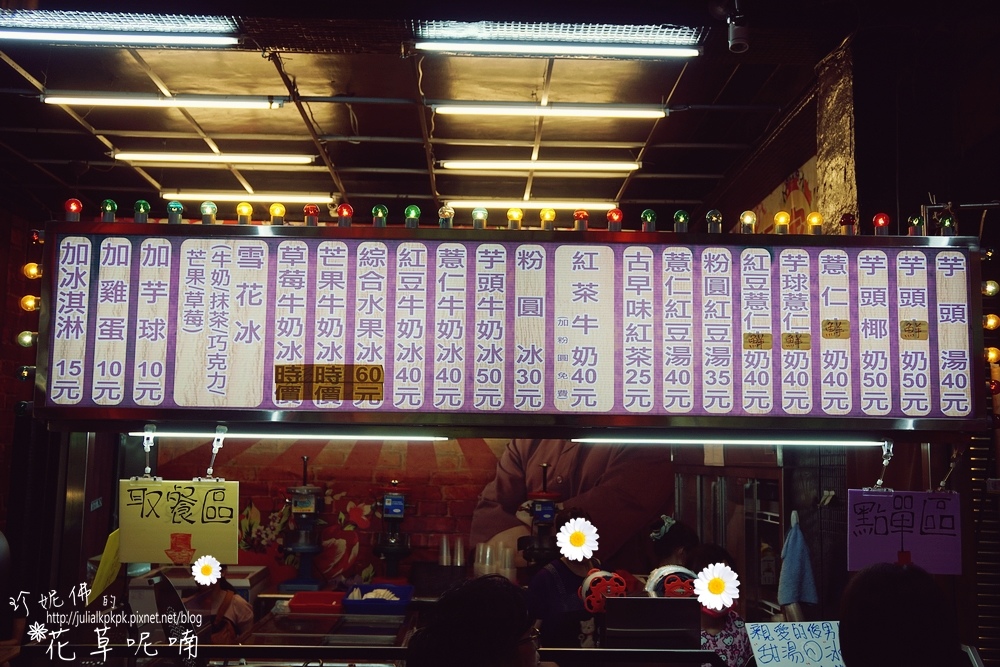 芋頭湯40元
芋頭鮮奶50元
芋頭椰奶50元
薏仁鮮奶40元
芋球薏仁鮮奶40元
紅豆薏仁鮮奶40元
粉圓紅豆湯35元
薏仁紅豆湯40元
古早味紅茶25元
紅茶牛奶40元
(加粉圓免費)
粉圓冰30元
芋頭牛奶冰50元
薏仁牛奶冰40元
紅豆牛奶冰40元
綜合水果冰60元
芒果牛奶冰時價
草莓牛奶冰時價
雪花冰50元
(牛奶抹茶巧克力)
芒果草莓
加芋球10元
加雞蛋10元
加冰淇淋15元
取餐區
點單區
親愛的俊男
甜湯
珍妮佛的
http://julialkpkpk.pixnet.net/blog
花草呢喃